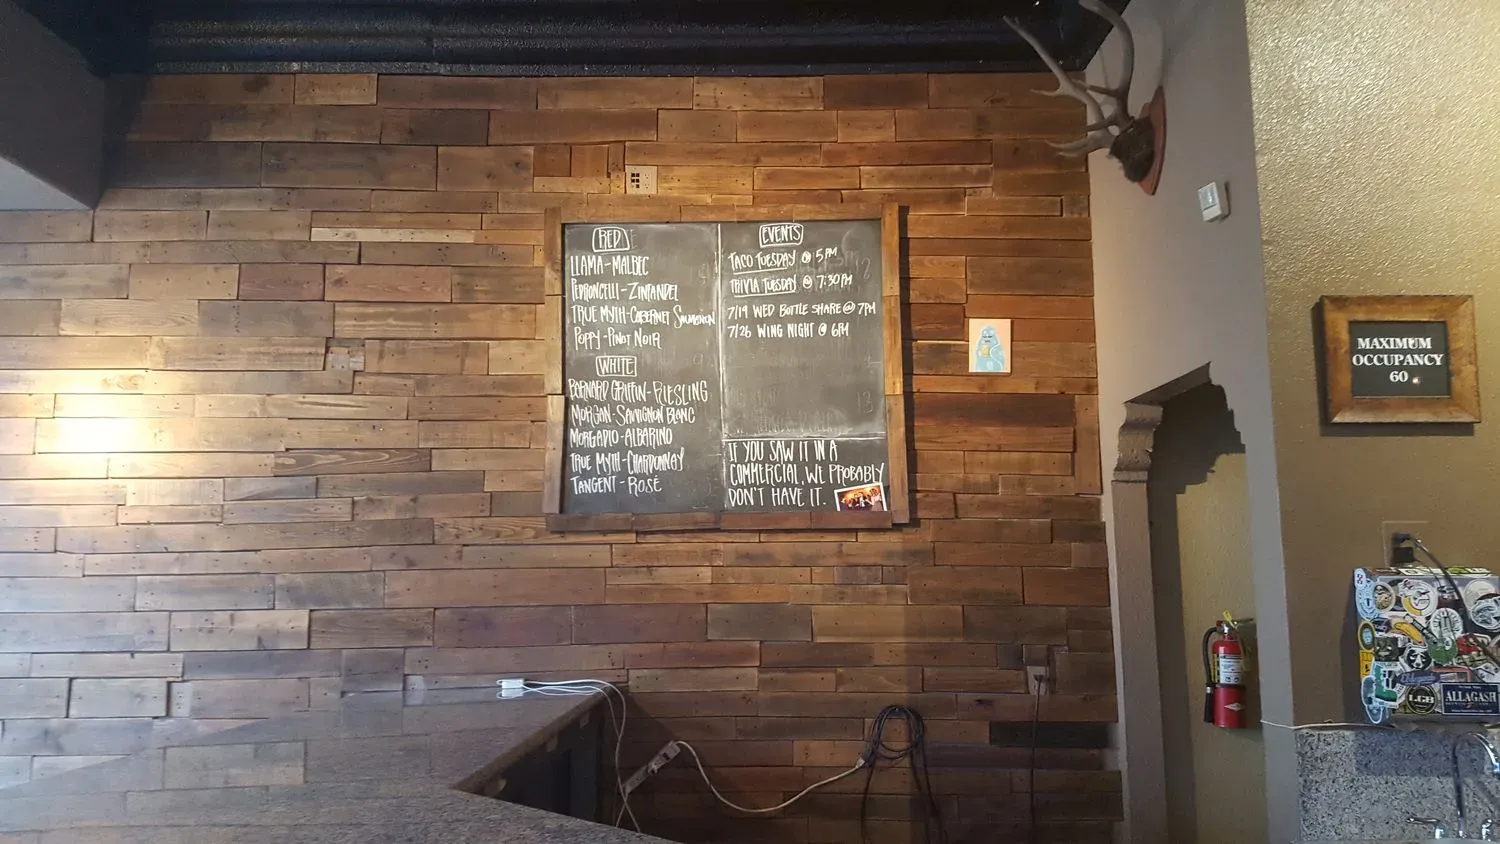 RED
LLAMA-MALBEC
PEDRONCELLI-ZINFANDEL
TRUE MYTH-CABERNET SAUVIGNON
POPPY-PINOT NOIR
WHITE
BERNARD GRIFFIN-RIESLING
MORGAN-SAUVIGNON BLANC
MORGADIO-ALBARINO
TRUE MYTH-CHARDONNAY
TANGENT-ROSÉ
EVENTS
TACO TUESDAY @ 5PM
TRIVIA TUESDAY @ 7:30PM
7/19 WED BOTTLE SHARE @ 7PM
7/26 WING NIGHT @ 6PM
IF YOU SAW IT IN A
COMMERCIAL, WE PROBABLY
DON'T HAVE IT.
MAXIMUM
OCCUPANCY
60
LGB
ALLAGASH